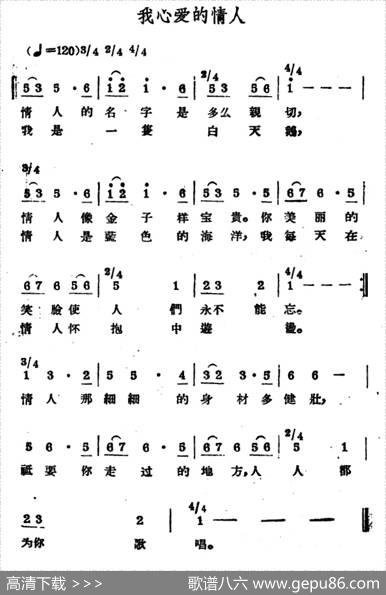 我心爱的情人
(♩=120)3/4 2/4 4/4
2/4 4/4
53 5·6 | 12 1·6 | 53 56 | 1 - - -
情人的名字是多么親切,
我是一隻白天鵝,
3/4
53 5·6 | 12 1·6 | 53 5·5 | 67 6·6
情人像金子样宝貴。你美丽的
情人是藍色的海洋,我每天在
2/4 4/4
67 6 56 | 5 1 | 23 2 | 1 - - -
笑臉使人們永不能忘。
情人怀抱中遊盪。
3/4
1 3·2 | 5 5·4 | 32 3·5 | 6 6 -
情人那細細的身材多健壯,
2/4
5 6·5 | 67 6·5 | 67 6·5 | 56 6 | 5 1
祗要你走过的地方,人人都
4/4
23 2 | 1 - - -
为你歌唱。
高清下载 >>>
歌谱八六 www.gepu86.com